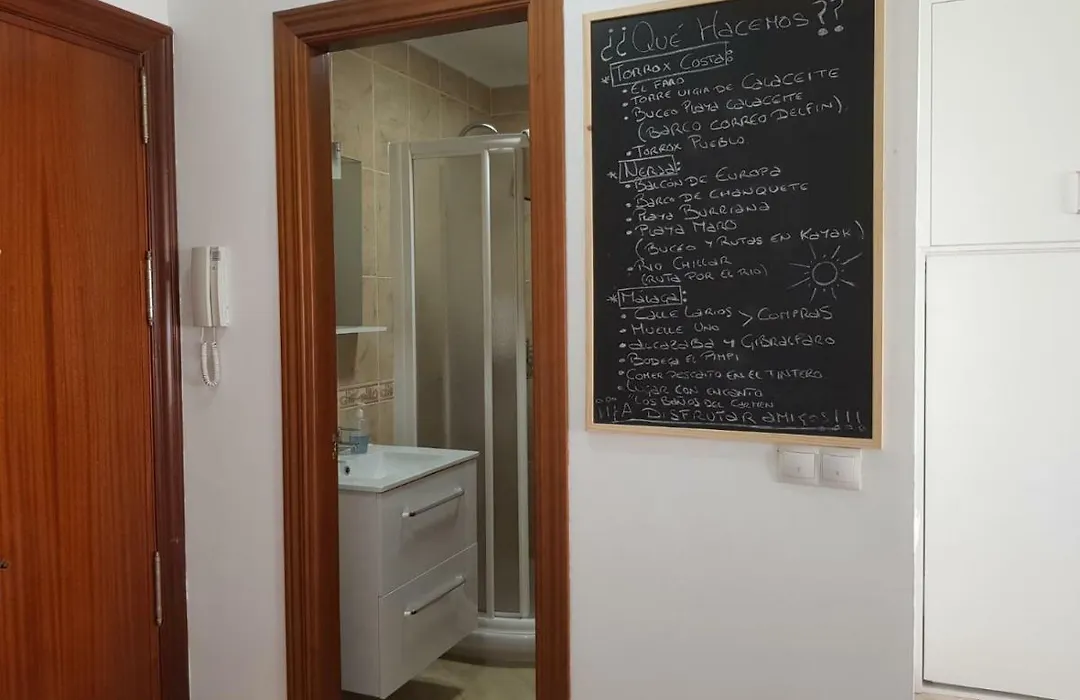 ¿¿Qué Hacemos??
* Torrox Costa:
• El Faro
• Torre Vigia de Calaceite
• Buceo Playa Calaceite
(Barco Correo Delfin).
• Torrox Pueblo
* Nerja:
• Balcón de Europa
• Barco de Chanquete
• Playa Burriana
• Playa Maro
(Buceo y Rutas en Kayak)
• Rio Chillar
(Ruta por el rio)
* Málaga:
• Calle Larios > Compras
• Muelle Uno
• Alcazaba y Gibralfaro
• Bodega el Pimpi
• Comer pescaito en el Tintero
• Lugar con encanto
"Los Baños del Carmen
¡¡¡A Disfrutar amigos!!!